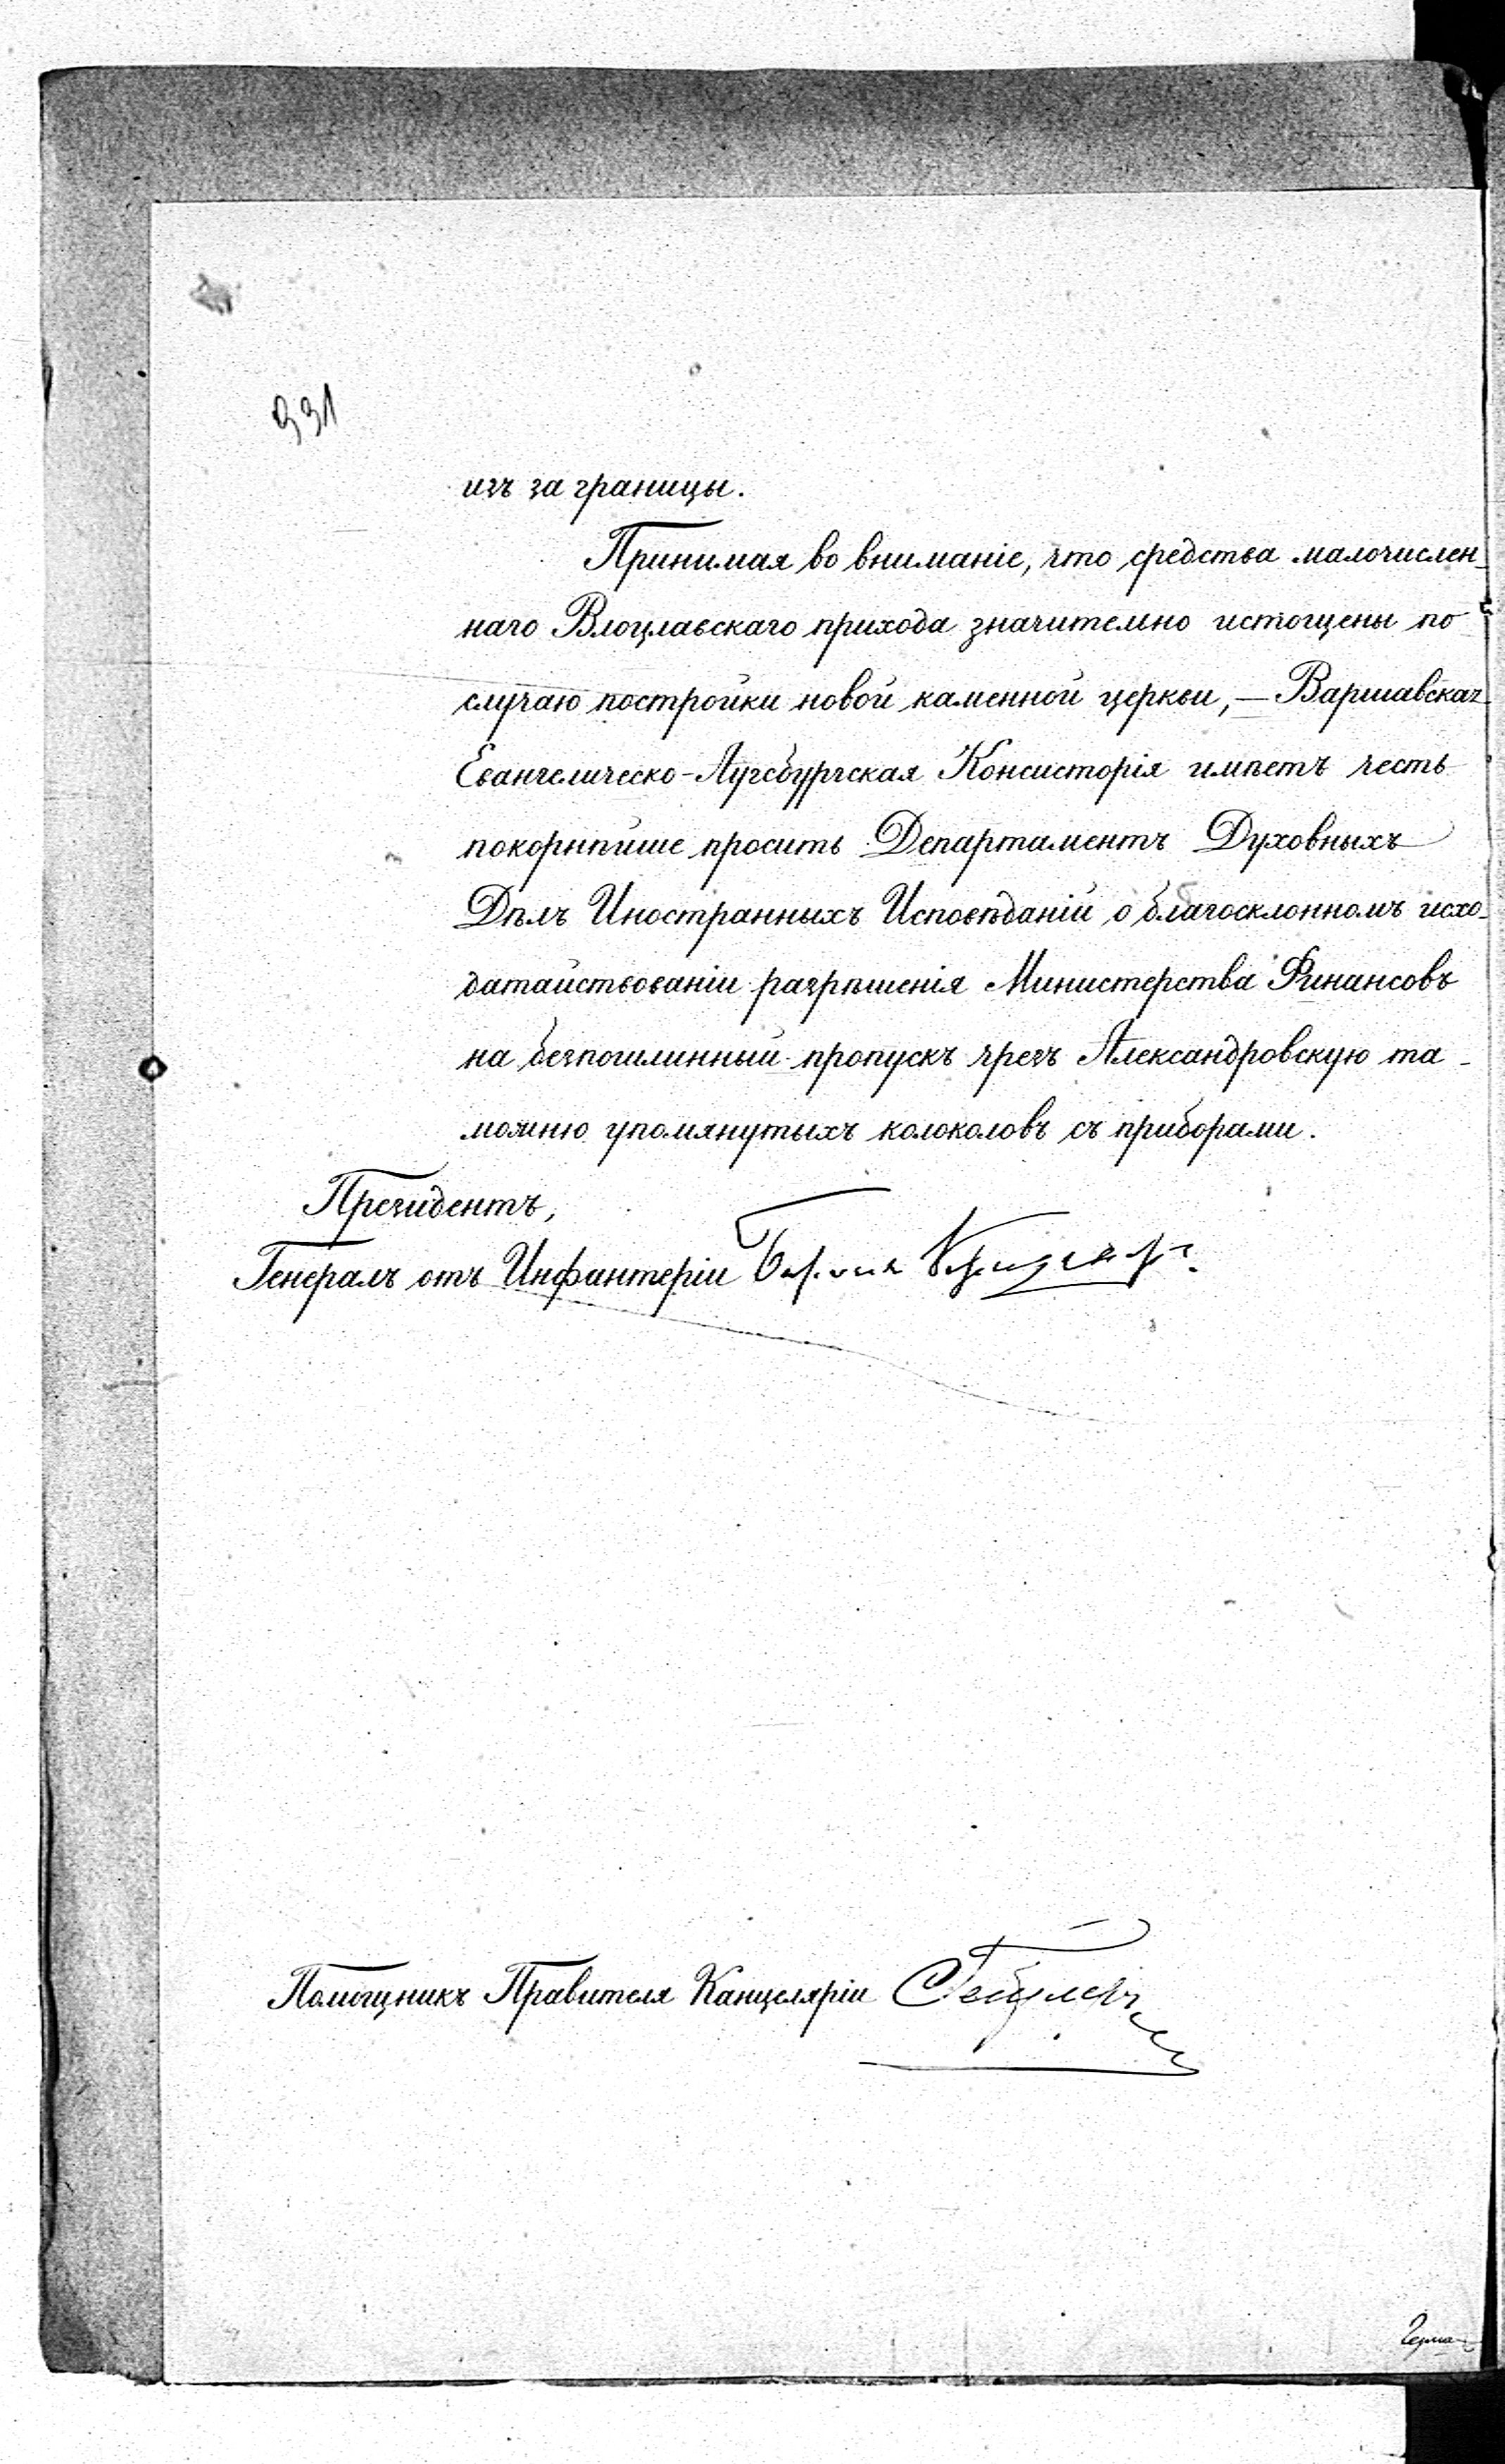 331
изъ за границы.
Принимая во вниманіе, что средства малочислен-
наго Влоцлавскаго прихода значительно истощены по
случаю постройки новой каменной церкви, — Варшавская
Евангелическо-Аугсбургская Консисторія имѣетъ честь
покорнѣйше просить Департаментъ Духовныхъ
Дѣлъ Иностранныхъ Исповѣданій о благосклонномъ исхо-
датайствованіи разрѣшенія Министерства Финансовъ
на безпошлинный пропускъ чрезъ Александровскую та-
можню упомянутыхъ колоколовъ съ приборами.
Президентъ,
Генералъ отъ Инфантеріи Баронъ
Помощникъ Правителя Канцеляріи